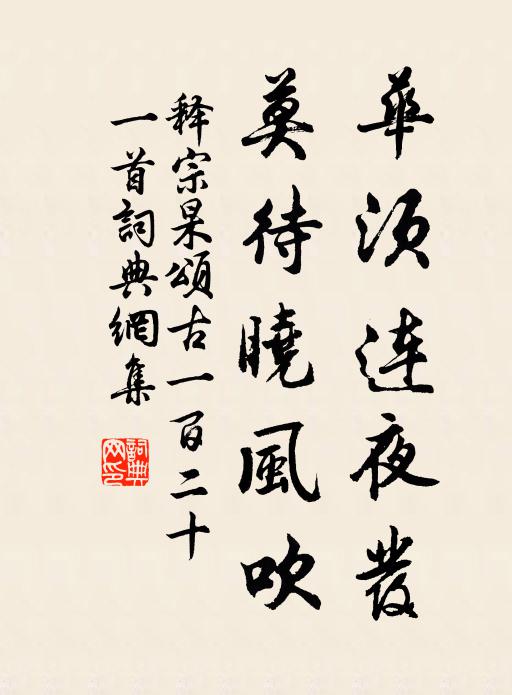 華須連夜發
莫待曉風吹
释宗杲頌古一百二十
一首詞典網集
詞典网印